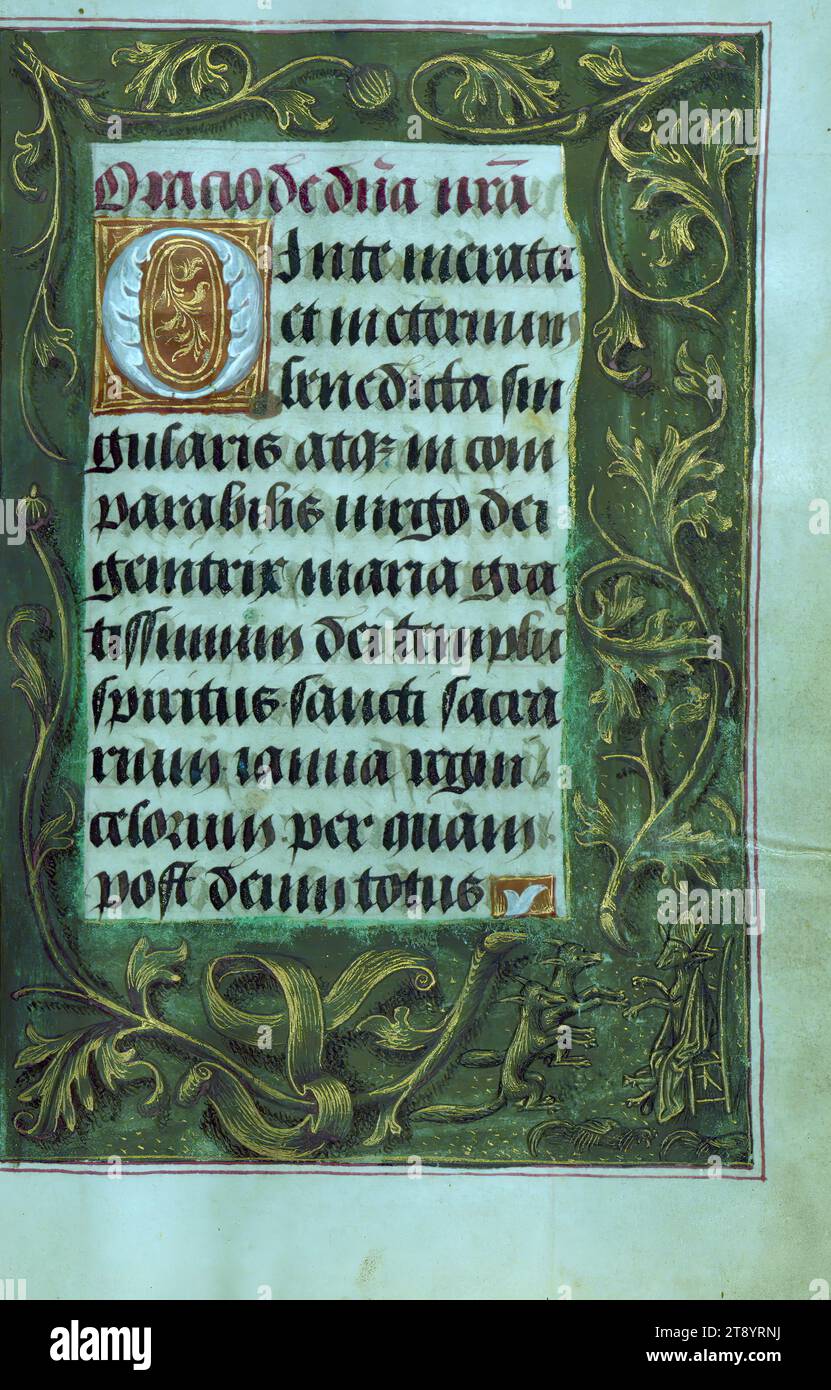 Oracio de dn̄a nr̄a
O Inte merata
et in eternum
benedicta sin
gularis atqȝ in com
parabilis uirgo dei
genitrix maria gra
tissimum dei templū
spiritus sancti sacra
rium ianua regni
celorum per quam
post deum totus
alamy
Image ID: 2T8YRNJ
www.alamy.com